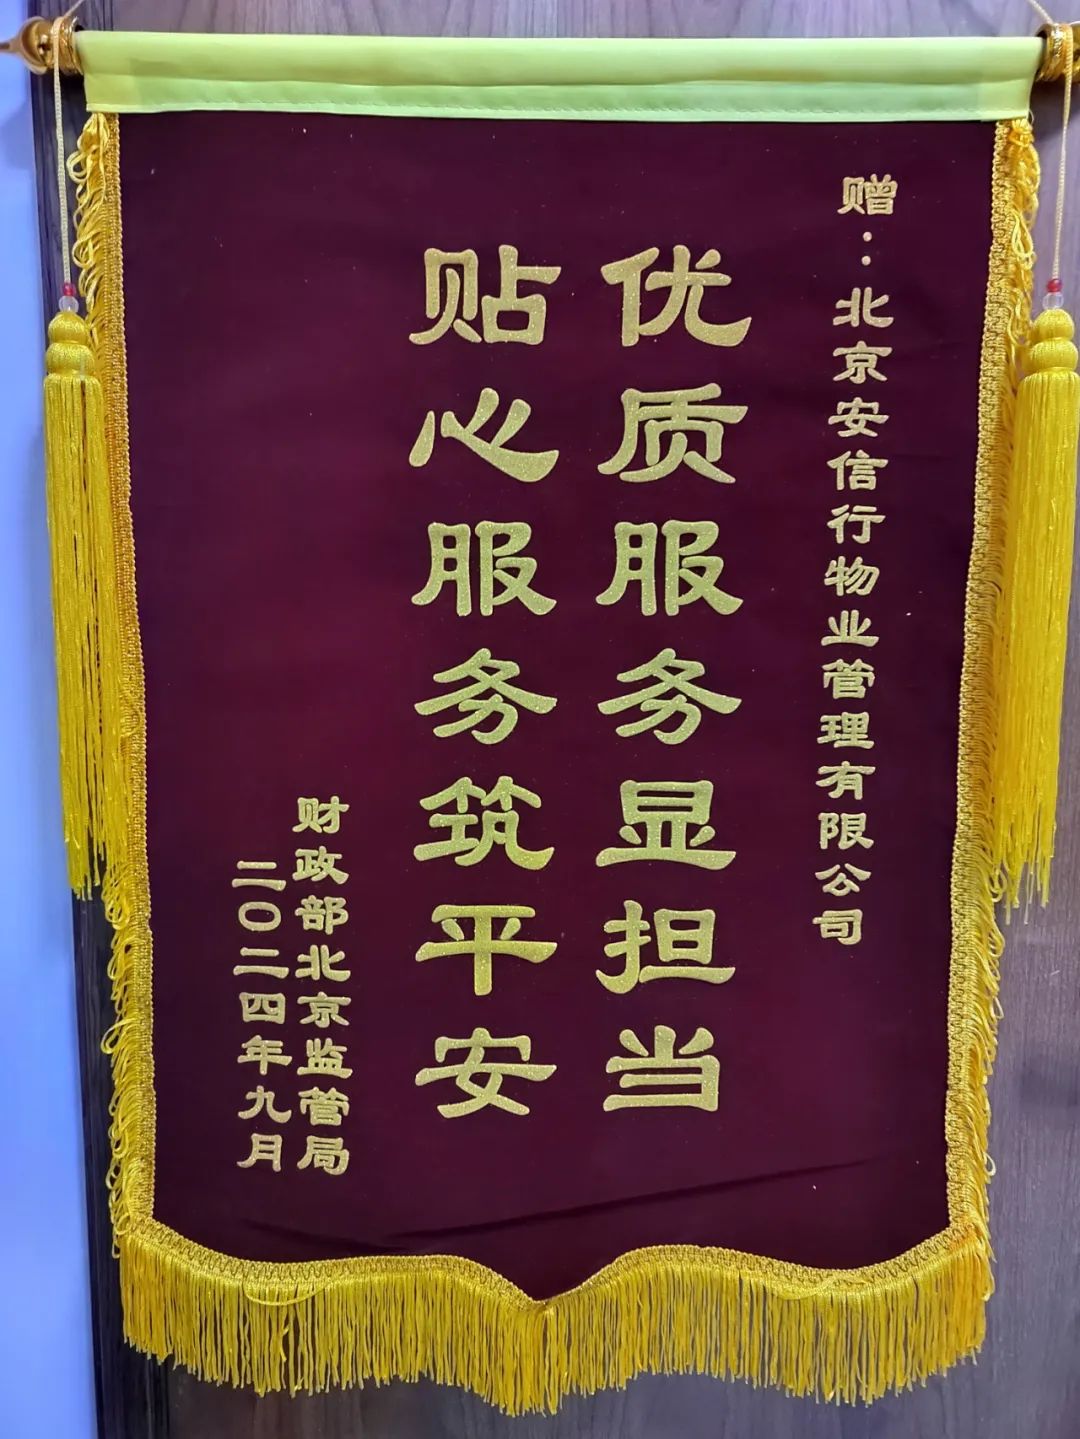 赠：北京安信行物业管理有限公司
优质服务显担当
贴心服务筑平安
财政部北京监管局
二〇二四年九月